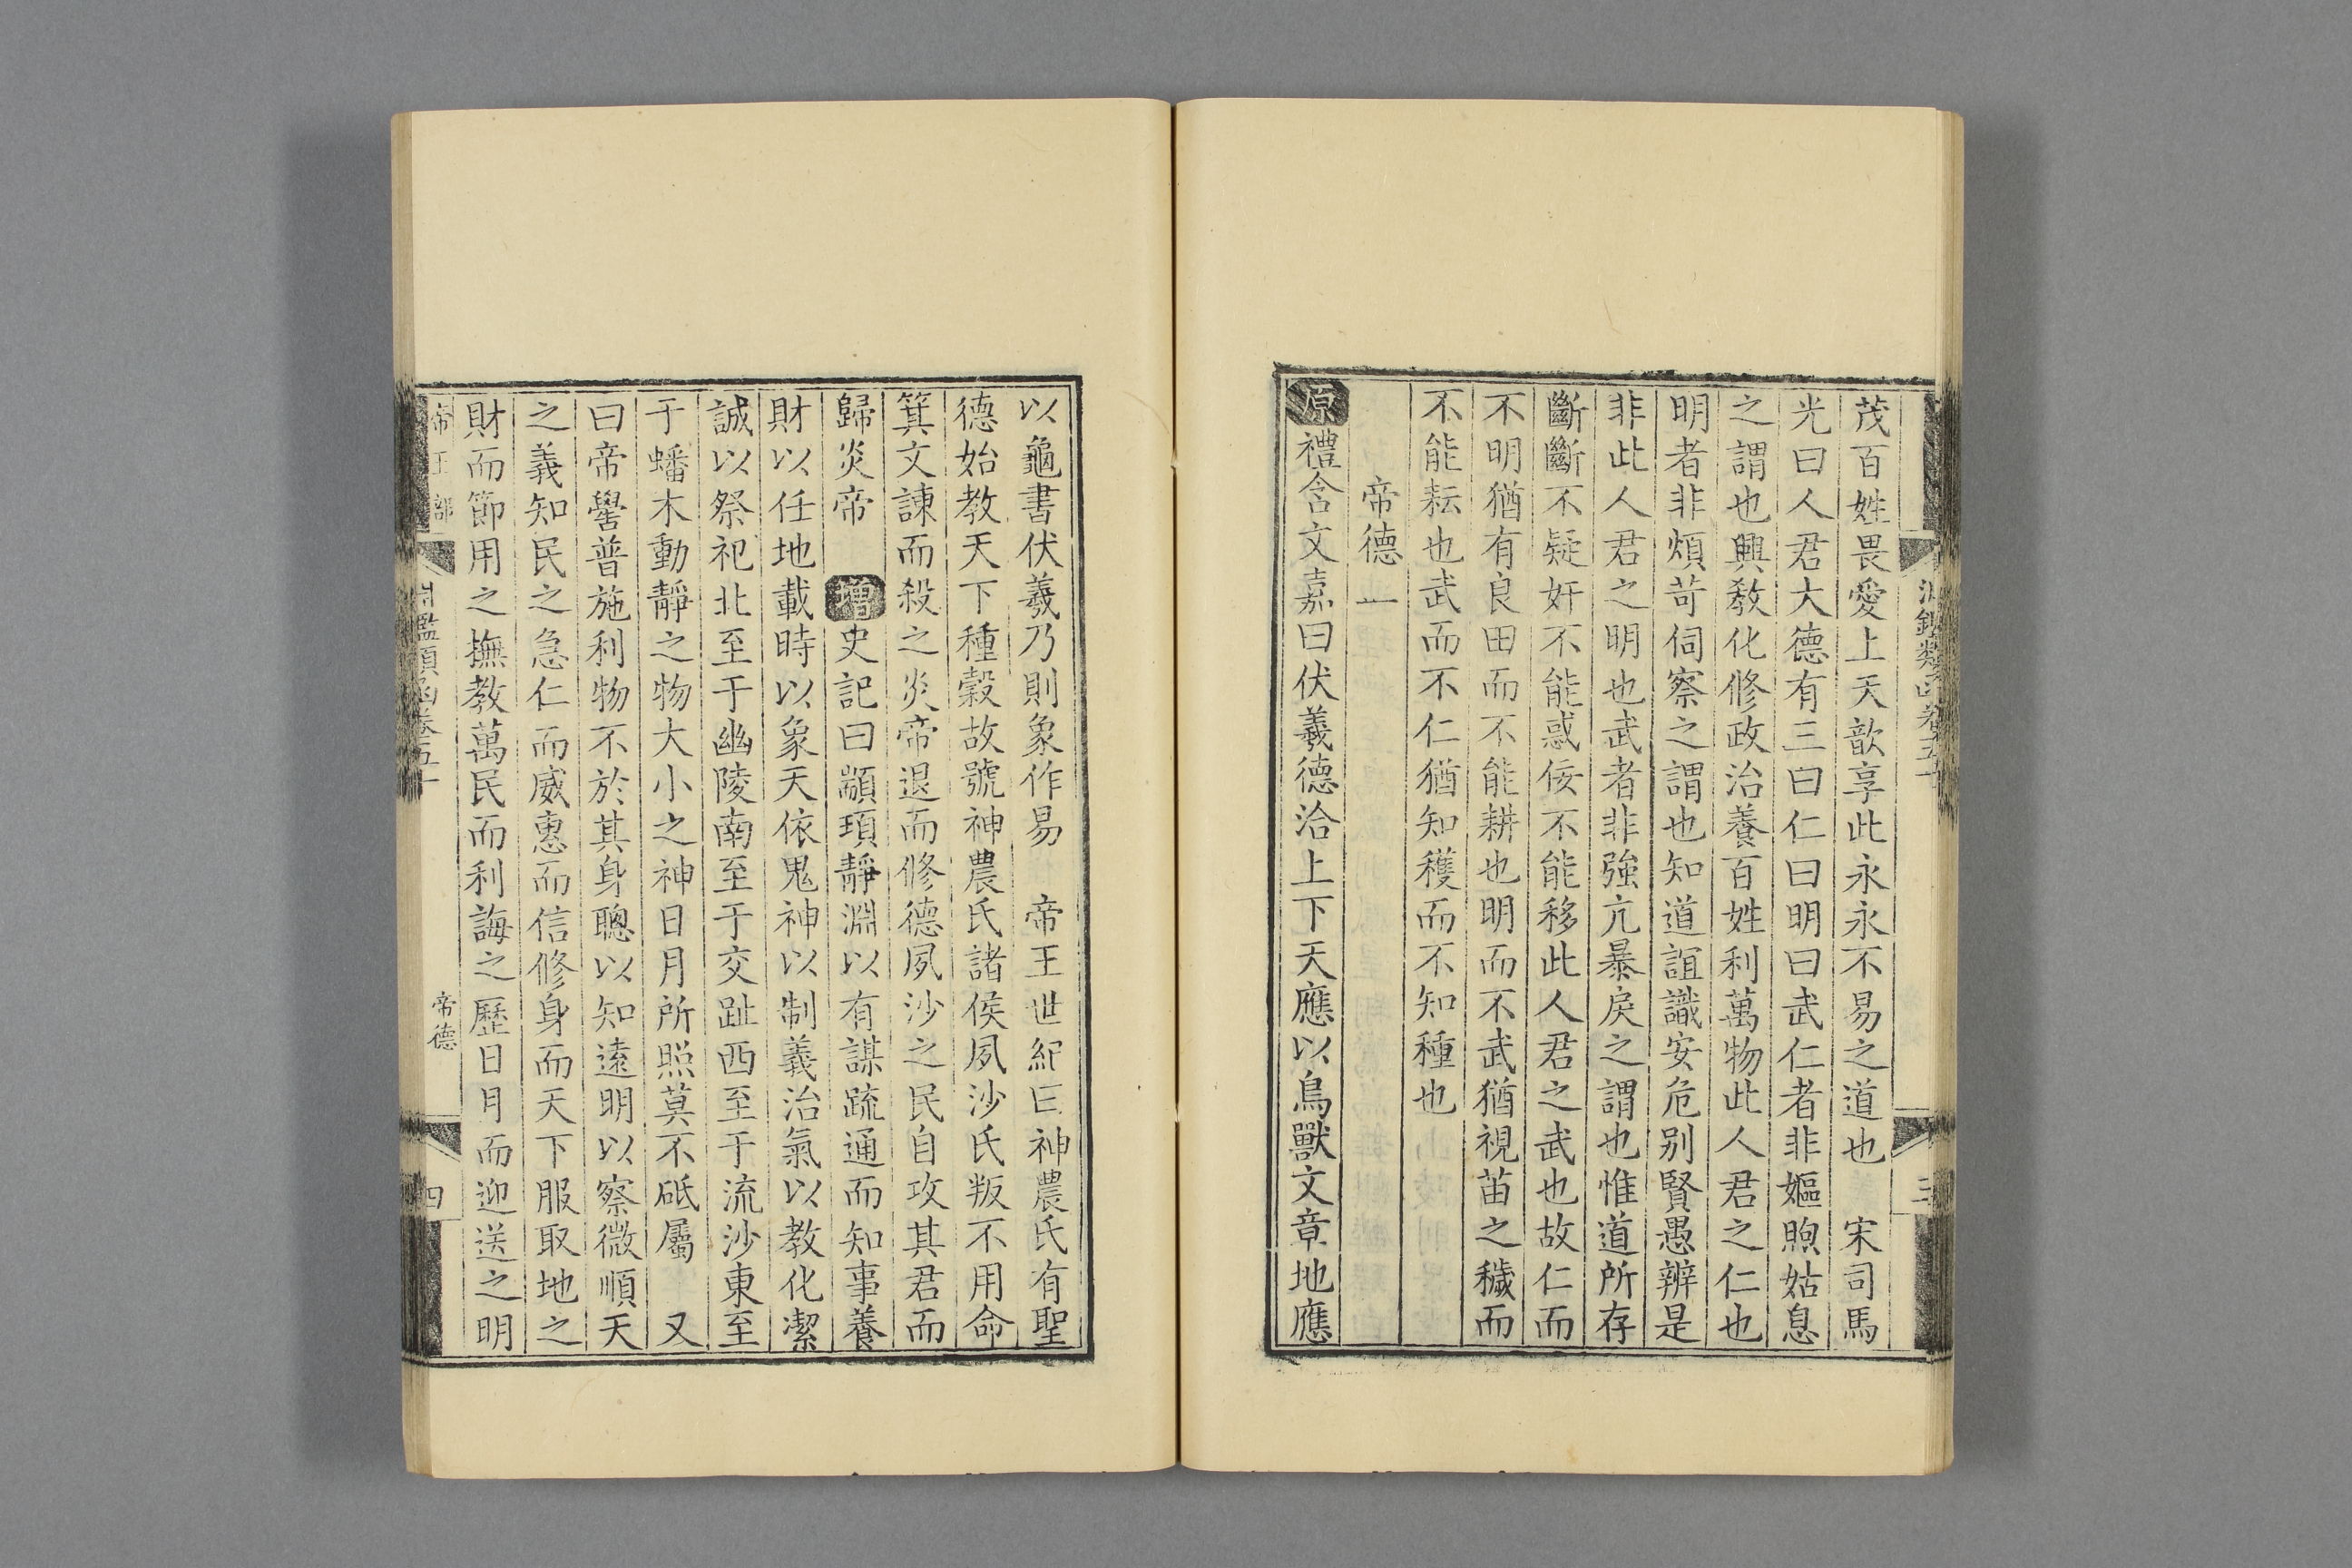 茂百姓畏愛上天歆享此永永不易之道也　宋司馬
光曰人君大德有三曰仁曰明曰武仁者非嫗煦姑息
之謂也興教化修政治養百姓利萬物此人君之仁也
明者非煩苛伺察之謂也知道誼識安危別賢愚辨是
非此人君之明也武者非強亢暴戾之謂也惟道所存
斷斷不疑奸不能惑佞不能移此人君之武也故仁而
不明猶有良田而不能耕也明而不武猶視苗之穢而
不能耘也武而不仁猶知穫而不知種也
帝德一
原禮含文嘉曰伏羲德洽上下天應以鳥獸文章地應
以龜書伏羲乃則象作易　帝王世紀曰神農氏有聖
德始教天下種穀故號神農氏諸侯夙沙氏叛不用命
箕文諫而殺之炎帝退而修德夙沙之民自攻其君而
歸炎帝　增史記曰顓頊靜淵以有謀疏通而知事養
財以任地載時以象天依鬼神以制義治氣以教化潔
誠以祭祀北至于幽陵南至于交趾西至于流沙東至
于蟠木動靜之物大小之神日月所照莫不砥屬　又
曰帝嚳普施利物不於其身聰以知遠明以察微順天
之義知民之急仁而威惠而信修身而天下服取地之
財而節用之撫教萬民而利誨之歷日月而迎送之明
帝王部
淵鑑類函卷五十
帝德
四